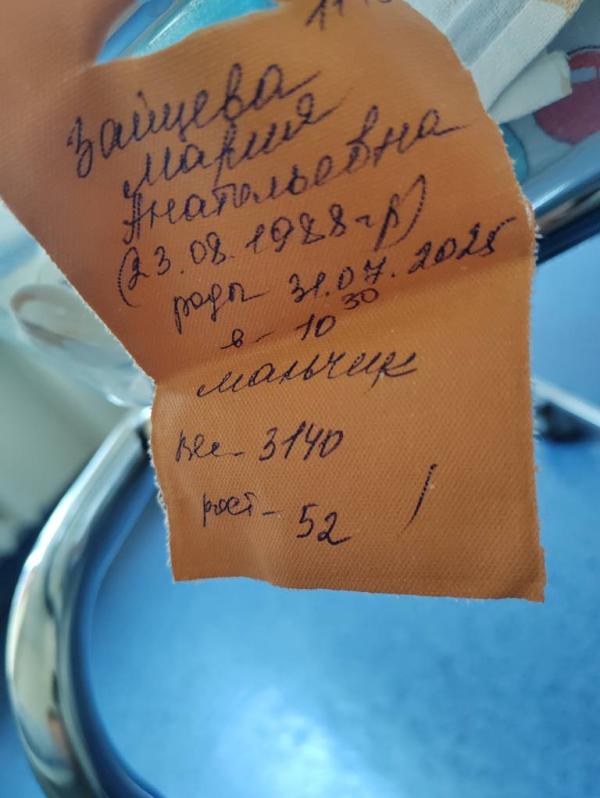 Зайцева
Мария
Анатольевна
(23.08.1988 г.р)
роды 31.07.2025
в - 10 30
мальчик
вес - 3140
рост - 52